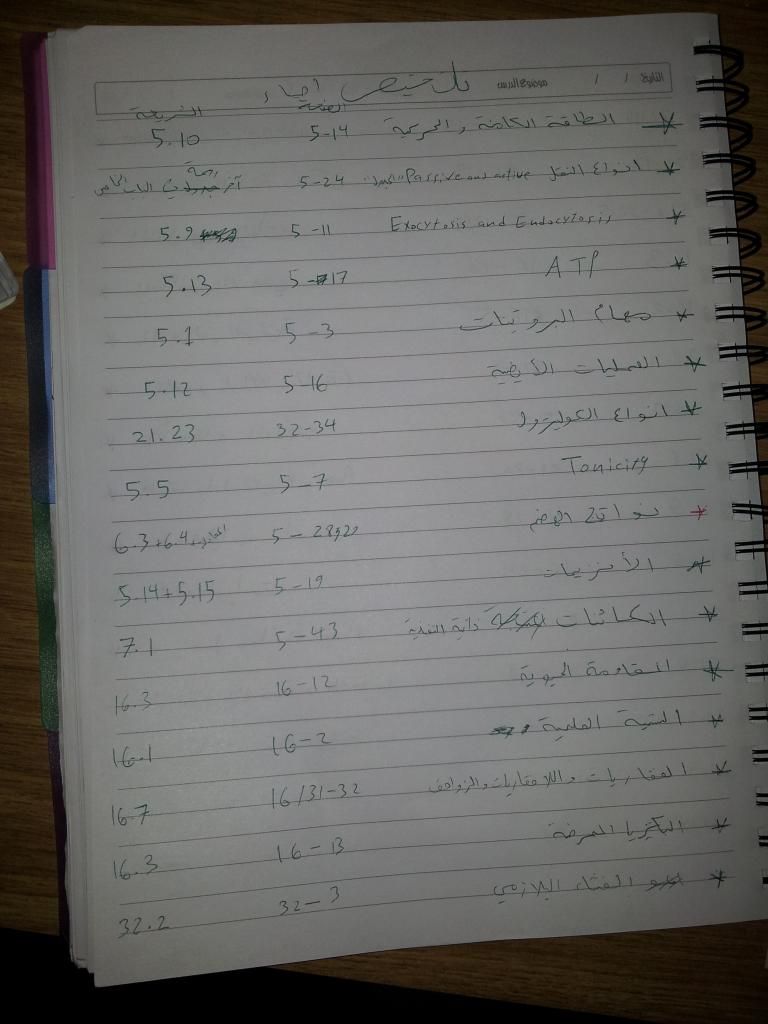 التاريخ / / موضوع الدرس
تلخيص احياء
الصفحة الشريحة
* الطاقة الكامنة و الحركية 5-14 5.10
* انواع النقل Passive and active 5-24 آخر رسمة الباب الخامس
* Exocytosis and Endocytosis 5-11 5.9
* ATP 5-17 5.13
* مهام البروتينات 5-3 5.1
* العمليات الأيضية 5-16 5.12
* انواع الكوليترول 32-34 21.23
* Tonicity 5-7 5.5
* نواتج الهضم 5-28و29 6.3+6.4+
* الأنزيمات 5-19 5.14+5.15
* الكائنات ذاتية التغذية 5-43 7.1
* المقاومة الحيوية 16-12 16.3
* التسمية العلمية 16-2 16.1
* الفقاريات و اللافقاريات والزواحف 16/31-32 16.7
* البكتيريا الممرضة 16-13 16.3
* الغشاء البلازمي 32-3 32.2